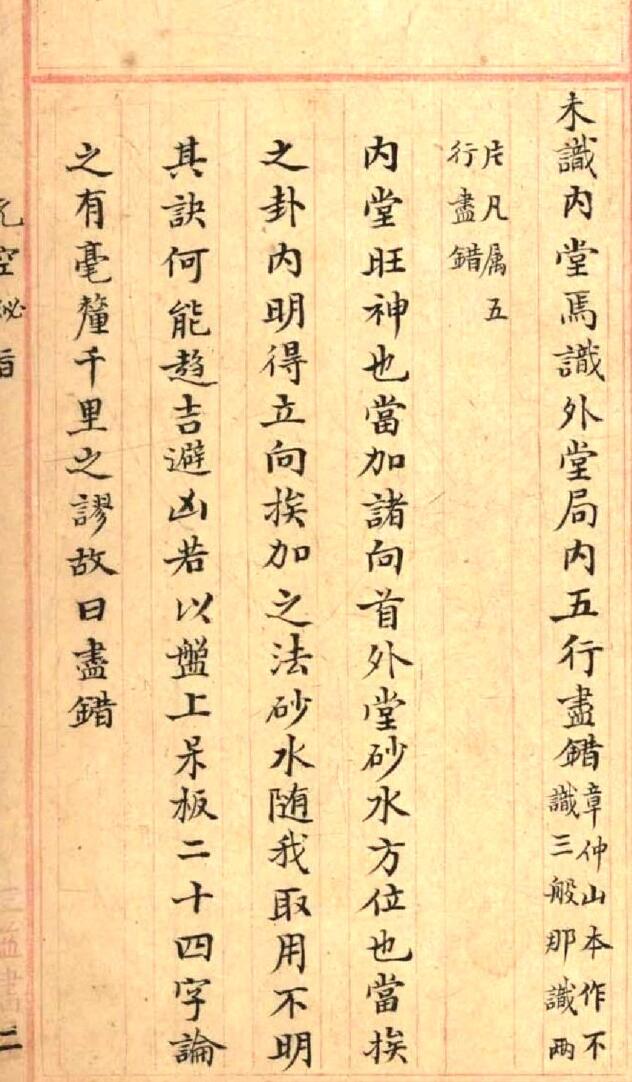 未識内堂焉識外堂局内五行盡錯章仲山本作不
識三般那識兩
片凡属五
行盡錯
内堂旺神也當加諸向首外堂砂水方位也當挨
之卦内明得立向挨加之法砂水随我取用不明
其訣何能趋吉避凶若以盤上呆板二十四字論
之有毫釐千里之謬故曰盡錯
元空秘旨
二